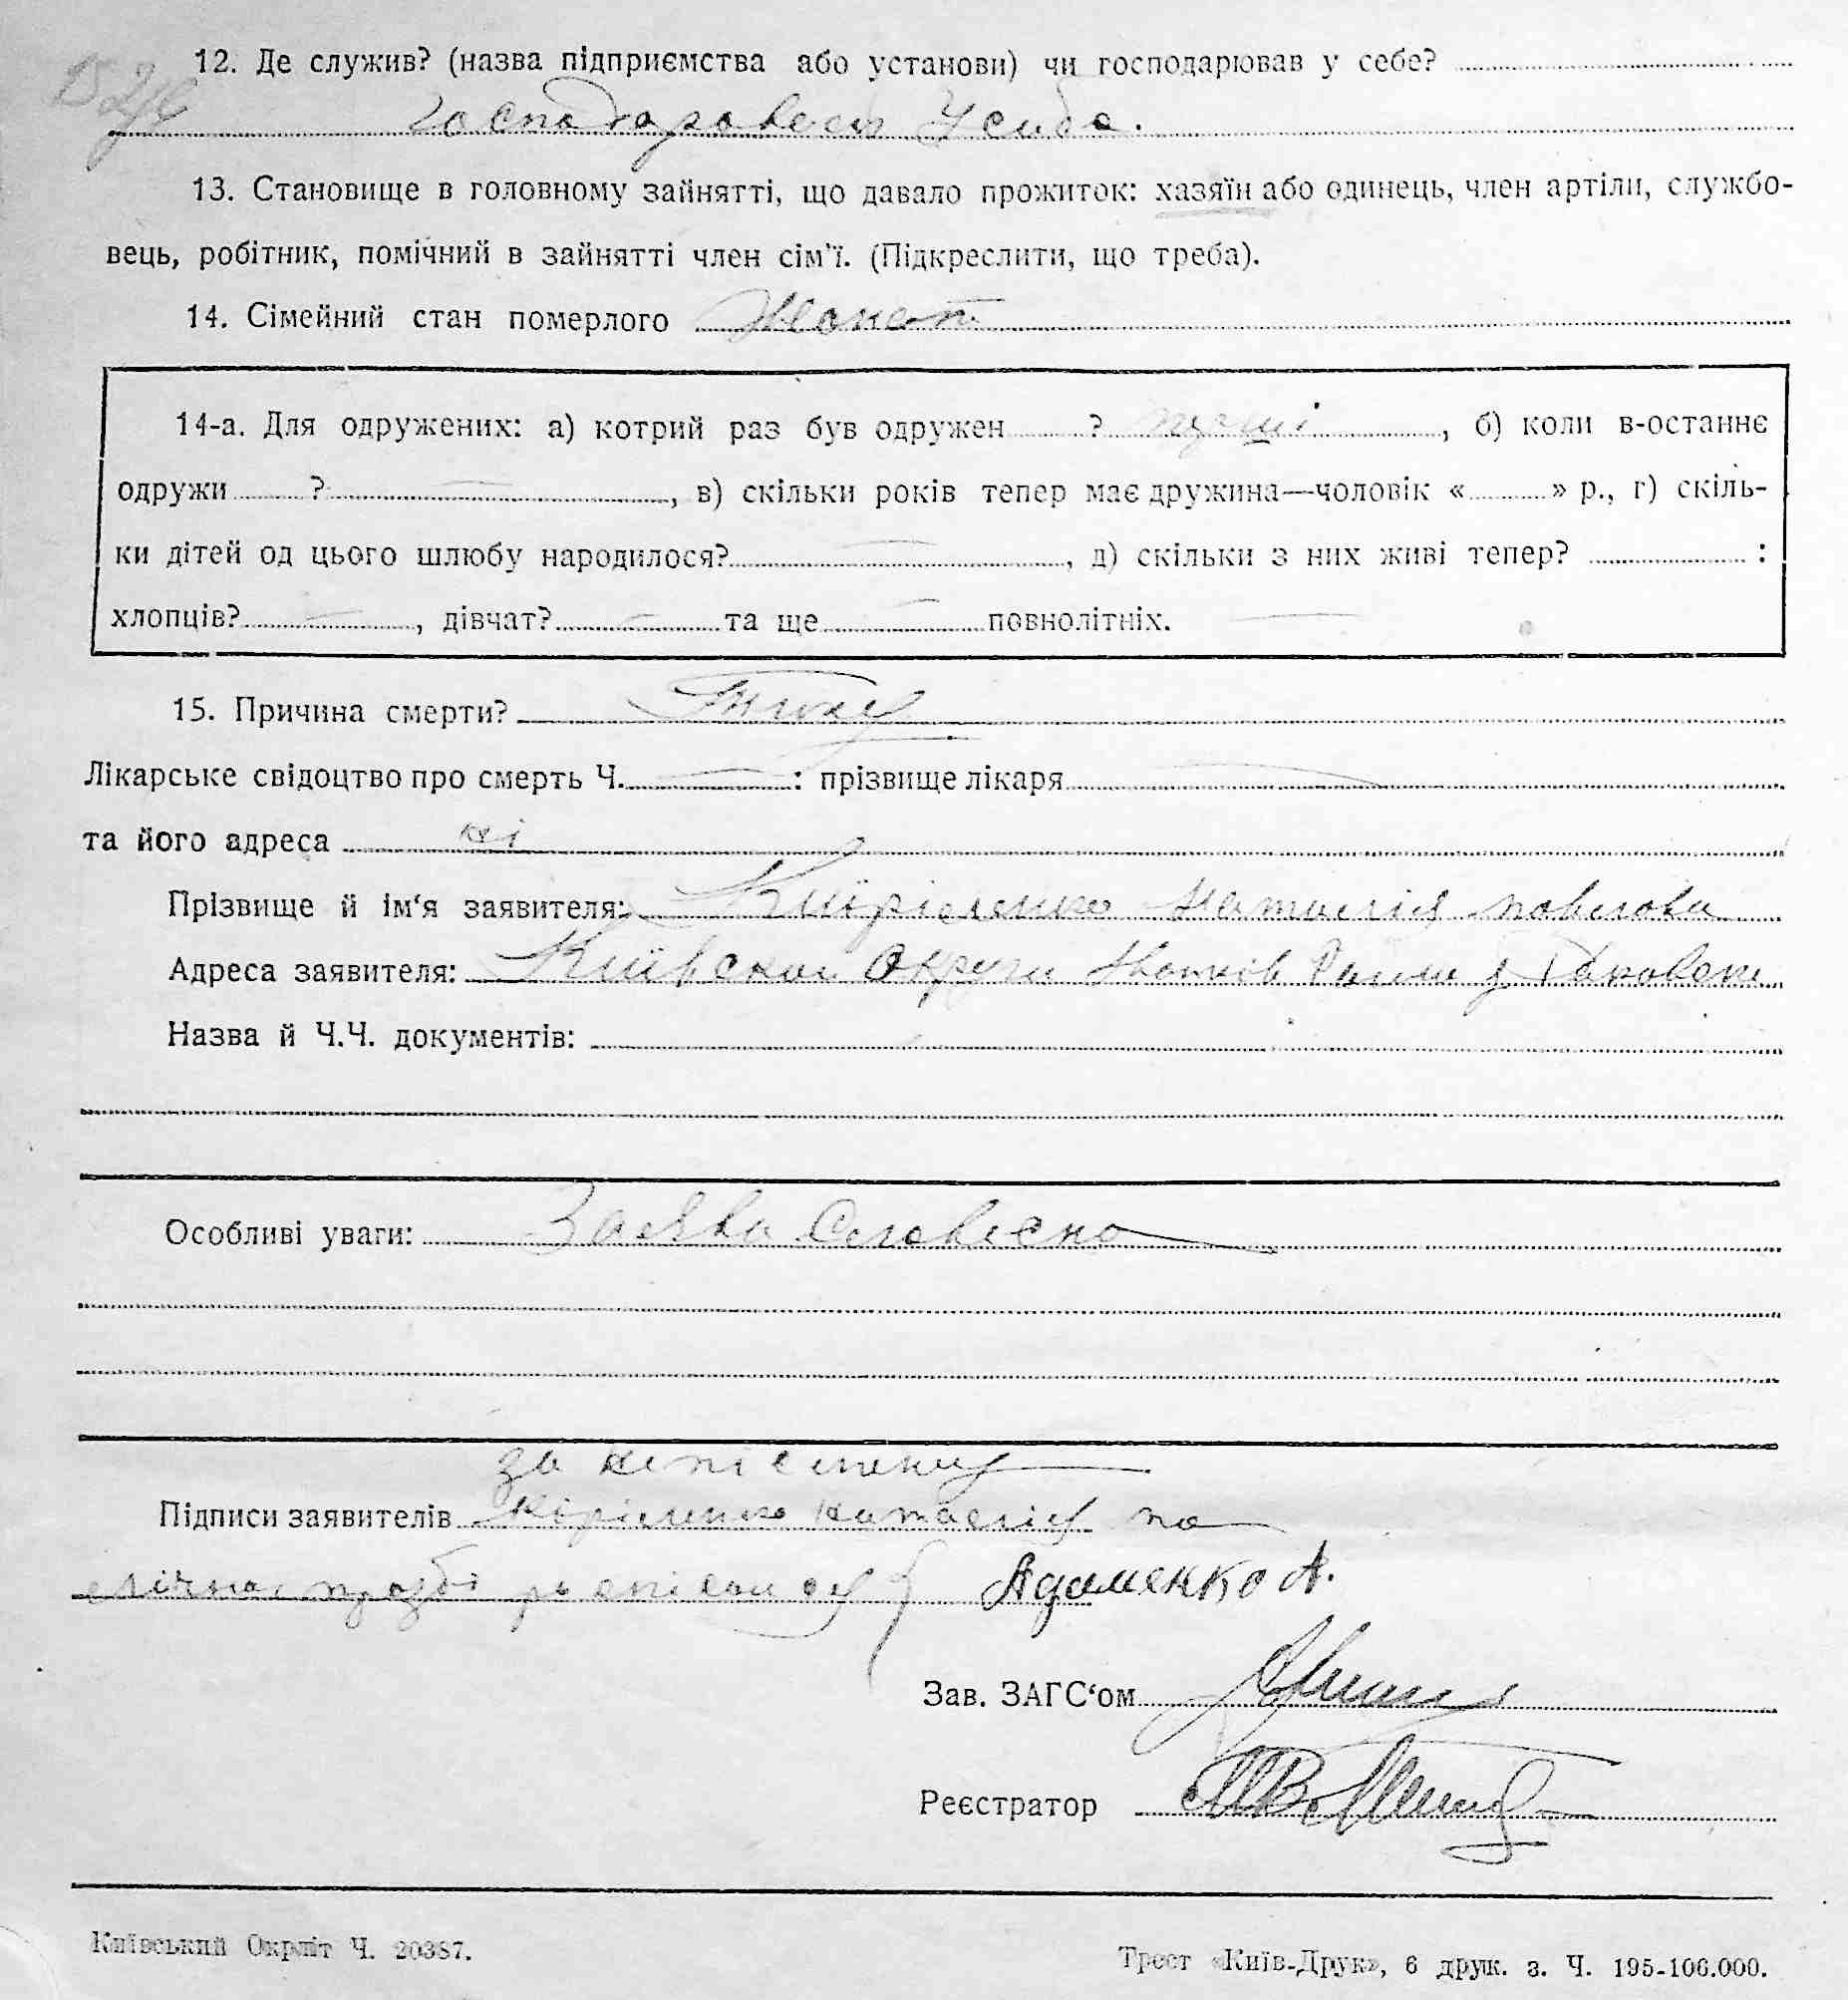 12. Де служив? (назва підприємства або установи) чи господарював у себе?
господаровав Усиба.
13. Становище в головному зайнятті, що давало прожиток: хазяїн або одинець, член артіли, службо-
вець, робітник, помічний в зайнятті член сім'ї. (Підкреслити, що треба).
14. Сімейний стан померлого Жонат
14-а. Для одружених: а) котрий раз був одружен ? перші, б) коли в-останнє
одружи ? —, в) скільки років тепер має дружина—чоловік « » р., г) скіль-
ки дітей од цього шлюбу народилося? —, д) скільки з них живі тепер? :
хлопців? —, дівчат? — та ще — повнолітніх. —
15. Причина смерти?
Лікарське свідоцтво про смерть Ч. — : прізвище лікаря —
та його адреса ні
Прізвище й ім'я заявителя: Наталія павлова
Адреса заявителя: Київскої Округи
Назва й Ч.Ч. документів:
Особливі уваги: Заява Словесно
за
Підписи заявителів Наталія по
Адаменко А.
Зав. ЗАГС'ом
Реєстратор
Київський Окрліт Ч. 20387.
Трест «Київ-Друк», 6 друк. з. Ч. 195-100.000.